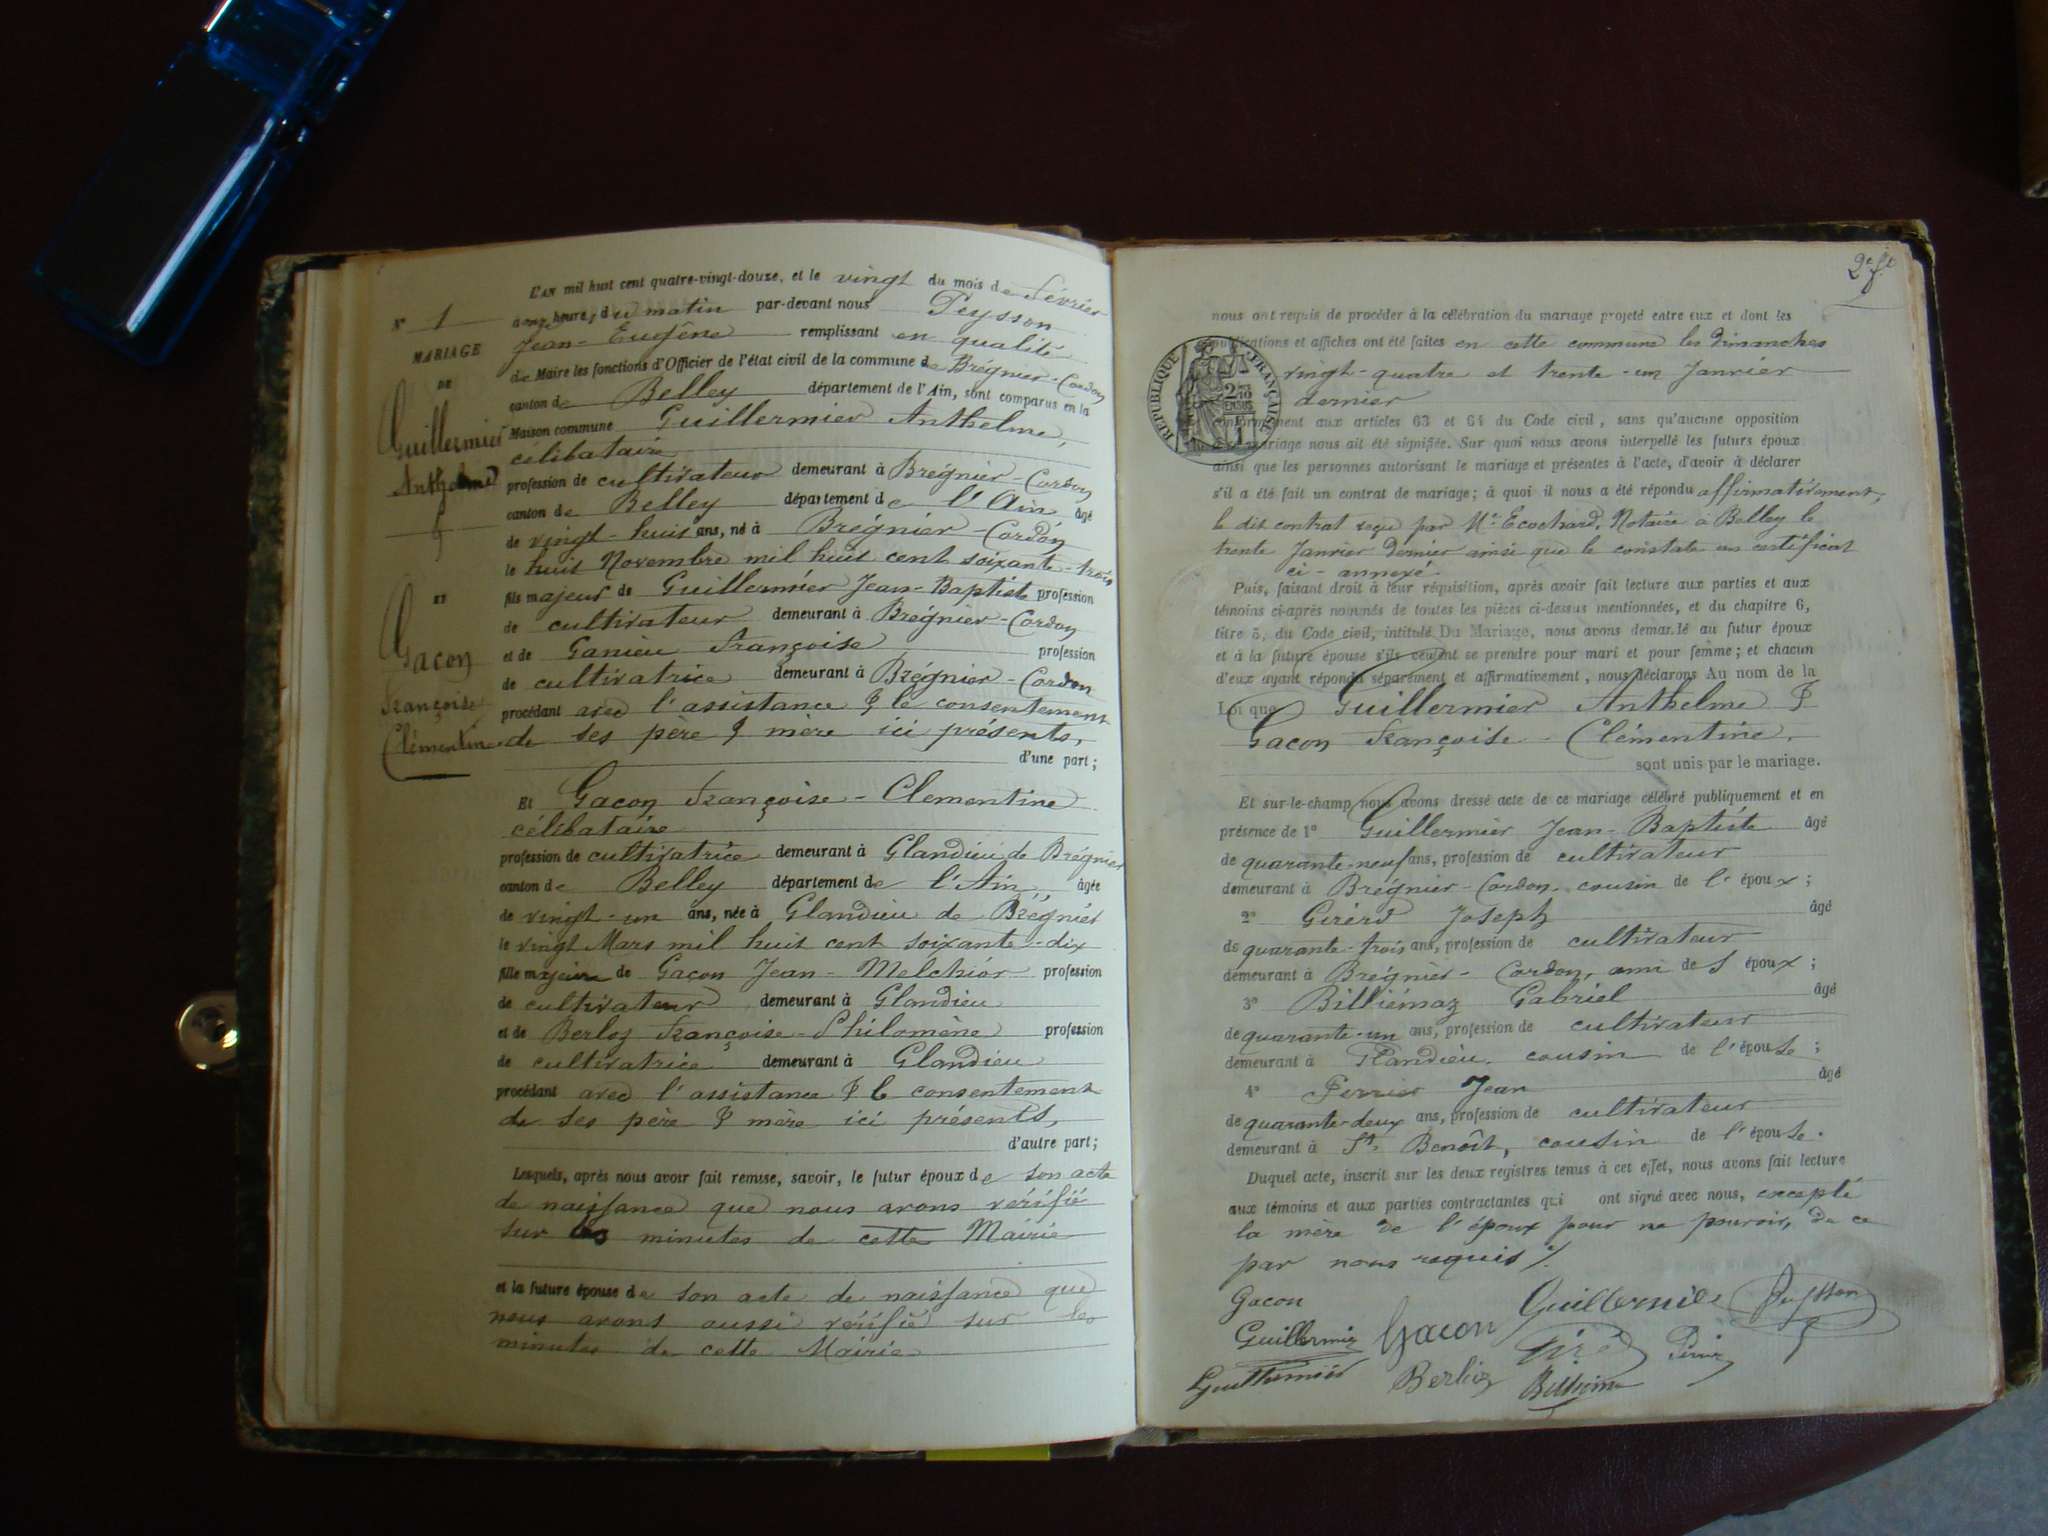 N° 1
MARIAGE
DE
Guillermier
Anthelme
&
ET
Gacon
Françoise
Clémentine
L'AN mil huit cent quatre-vingt-douze, et le vingt du mois de Février
à onze heures du matin par-devant nous Peysson
Jean-Eugène remplissant en qualité
de Maire les fonctions d'Officier de l'état civil de la commune de Brégnier-Cordon
canton de Belley département de l'Ain, sont comparus en la
Maison commune Guillermier Anthelme,
célibataire
profession de cultivateur demeurant à Brégnier-Cordon
canton de Belley département de l'Ain âgé
de vingt-huit ans, né à Brégnier-Cordon
le huit Novembre mil huit cent soixante-trois
fils majeur de Guillermier Jean-Baptiste profession
de cultivateur demeurant à Brégnier-Cordon
et de Ganieu Françoise profession
de cultivatrice demeurant à Brégnier-Cordon
procédant avec l'assistance & le consentement
de ses père & mère ici présents,
d'une part;
Et Gacon Françoise-Clementine
célibataire
profession de cultivatrice demeurant à Glandieu de Brégnier
canton de Belley département de l'Ain, âgée
de vingt-un ans, née à Glandieu de Brégnier
le vingt Mars mil huit cent soixante-dix
fille majeure de Gacon Jean-Melchior profession
de cultivateur demeurant à Glandieu
et de Berlioz Françoise-Philomène profession
de cultivatrice demeurant à Glandieu
procédant avec l'assistance & le consentement
de ses père & mère ici présents,
d'autre part;
Lesquels, après nous avoir fait remise, savoir, le futur époux de son acte
de naissance que nous avons vérifié
sur les minutes de cette Mairie
et la future épouse de son acte de naissance que
nous avons aussi vérifié sur les
minutes de cette Mairie
2e ft
nous ont requis de procéder à la célébration du mariage projeté entre eux et dont les
publications et affiches ont été faites en cette commune les dimanches
vingt-quatre et trente-un Janvier
dernier
RÉPUBLIQUE FRANÇAISE
2/10 EN SUS
conformément aux articles 63 et 64 du Code civil, sans qu'aucune opposition
au mariage nous ait été signifiée. Sur quoi nous avons interpellé les futurs époux
ainsi que les personnes autorisant le mariage et présentes à l'acte, d'avoir à déclarer
s'il a été fait un contrat de mariage; à quoi il nous a été répondu affirmativement,
le dit contrat reçu par Me Ecochard, Notaire à Belley le
trente Janvier dernier ainsi que le constate un certificat
ci-annexé.
Puis, faisant droit à leur réquisition, après avoir fait lecture aux parties et aux
témoins ci-après nommés de toutes les pièces ci-dessus mentionnées, et du chapitre 6,
titre 5, du Code civil, intitulé Du Mariage, nous avons demandé au futur époux
et à la future épouse s'ils veulent se prendre pour mari et pour femme; et chacun
d'eux ayant répondu séparément et affirmativement, nous déclarons Au nom de la
Loi que Guillermier Anthelme &
Gacon Françoise-Clémentine,
sont unis par le mariage.
Et sur-le-champ nous avons dressé acte de ce mariage célébré publiquement et en
présence de 1° Guillermier Jean-Baptiste âgé
de quarante-neuf ans, profession de cultivateur
demeurant à Brégnier-Cordon, cousin de l'époux;
2° Girerd Joseph âgé
de quarante-trois ans, profession de cultivateur
demeurant à Brégnier-Cordon, ami de l'époux;
3° Billiémaz Gabriel âgé
de quarante-un ans, profession de cultivateur
demeurant à Glandieu, cousin de l'épouse;
4° Perrier Jean âgé
de quarante-deux ans, profession de cultivateur
demeurant à St Benoît, cousin de l'épouse.
Duquel acte, inscrit sur les deux registres tenus à cet effet, nous avons fait lecture
aux témoins et aux parties contractantes qui ont signé avec nous, excepté
la mère de l'époux pour ne pouvoir, de ce
par nous requis ./.
Gacon Guillermier Peysson
Guillermier Gacon
Guillermier Berlioz